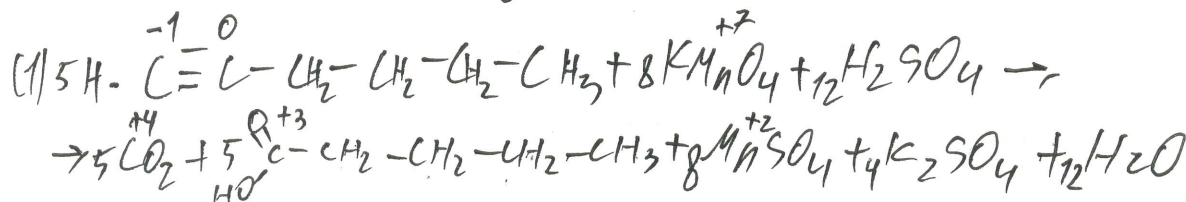 (1) 5 H-C⁻¹≡C⁰-CH₂-CH₂-CH₂-CH₃ + 8KMn⁺⁷O₄ + 12H₂SO₄ →
→ 5C⁺⁴O₂ + 5 HO-C⁺³(=O)-CH₂-CH₂-CH₂-CH₃ + 8Mn⁺²SO₄ + 4K₂SO₄ + 12H₂O